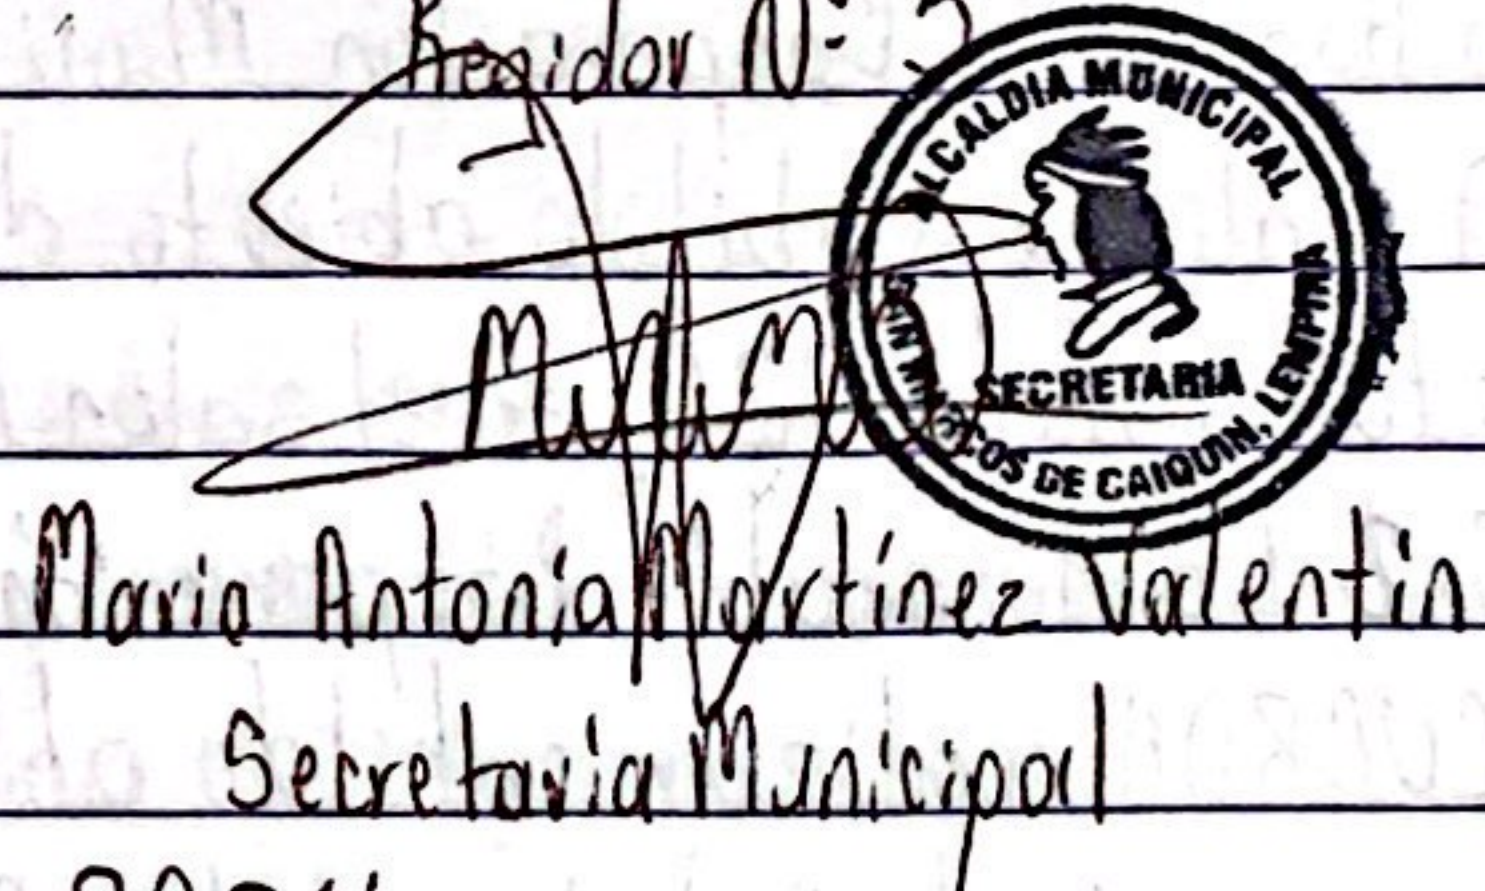 Regidor Nº 3
ALCALDIA MUNICIPAL
SECRETARIA
SAN MARCOS DE CAIQUIN, LEMPIRA
Maria Antonia Martínez Valentin
Secretaria Municipal